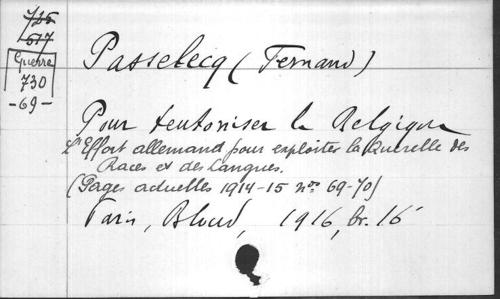 725
577
Guerre
730
-69-
Passelecq (Fernand)
Pour teutoniser la Belgique
L'Effort allemand pour exploiter la Querelle des
Races et des Langues.
(Pages actuelles 1914-15 nos 69-70)
Paris, Bloud, 1916, br. 16°